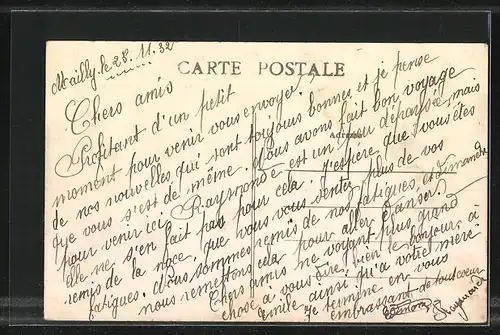 Mailly, le 28. 11. 32
CARTE POSTALE
Adresse
Chers amis
Profitant d'un petit
moment pour venir vous envoyer
de nos nouvelles qui sont toujours bonnes et je pense
que vous s'est de même. Nous avons fait bon voyage
pour venir ici. Raymonde est un peu dépaysée, mais
elle ne s'en fait pas pour cela. J'espère que vous êtes
remis de la noce, que vous vous sentez plus de vos
fatigues. Nous sommes remis de nos fatigues, et dimanche
nous remettons cela pour aller danser.
Chers amis ne voyant plus grand
chose à vous dire, bien le bonjour à
Emile ainsi qu'à votre mère
je termine en vous
embrassant de tout cœur